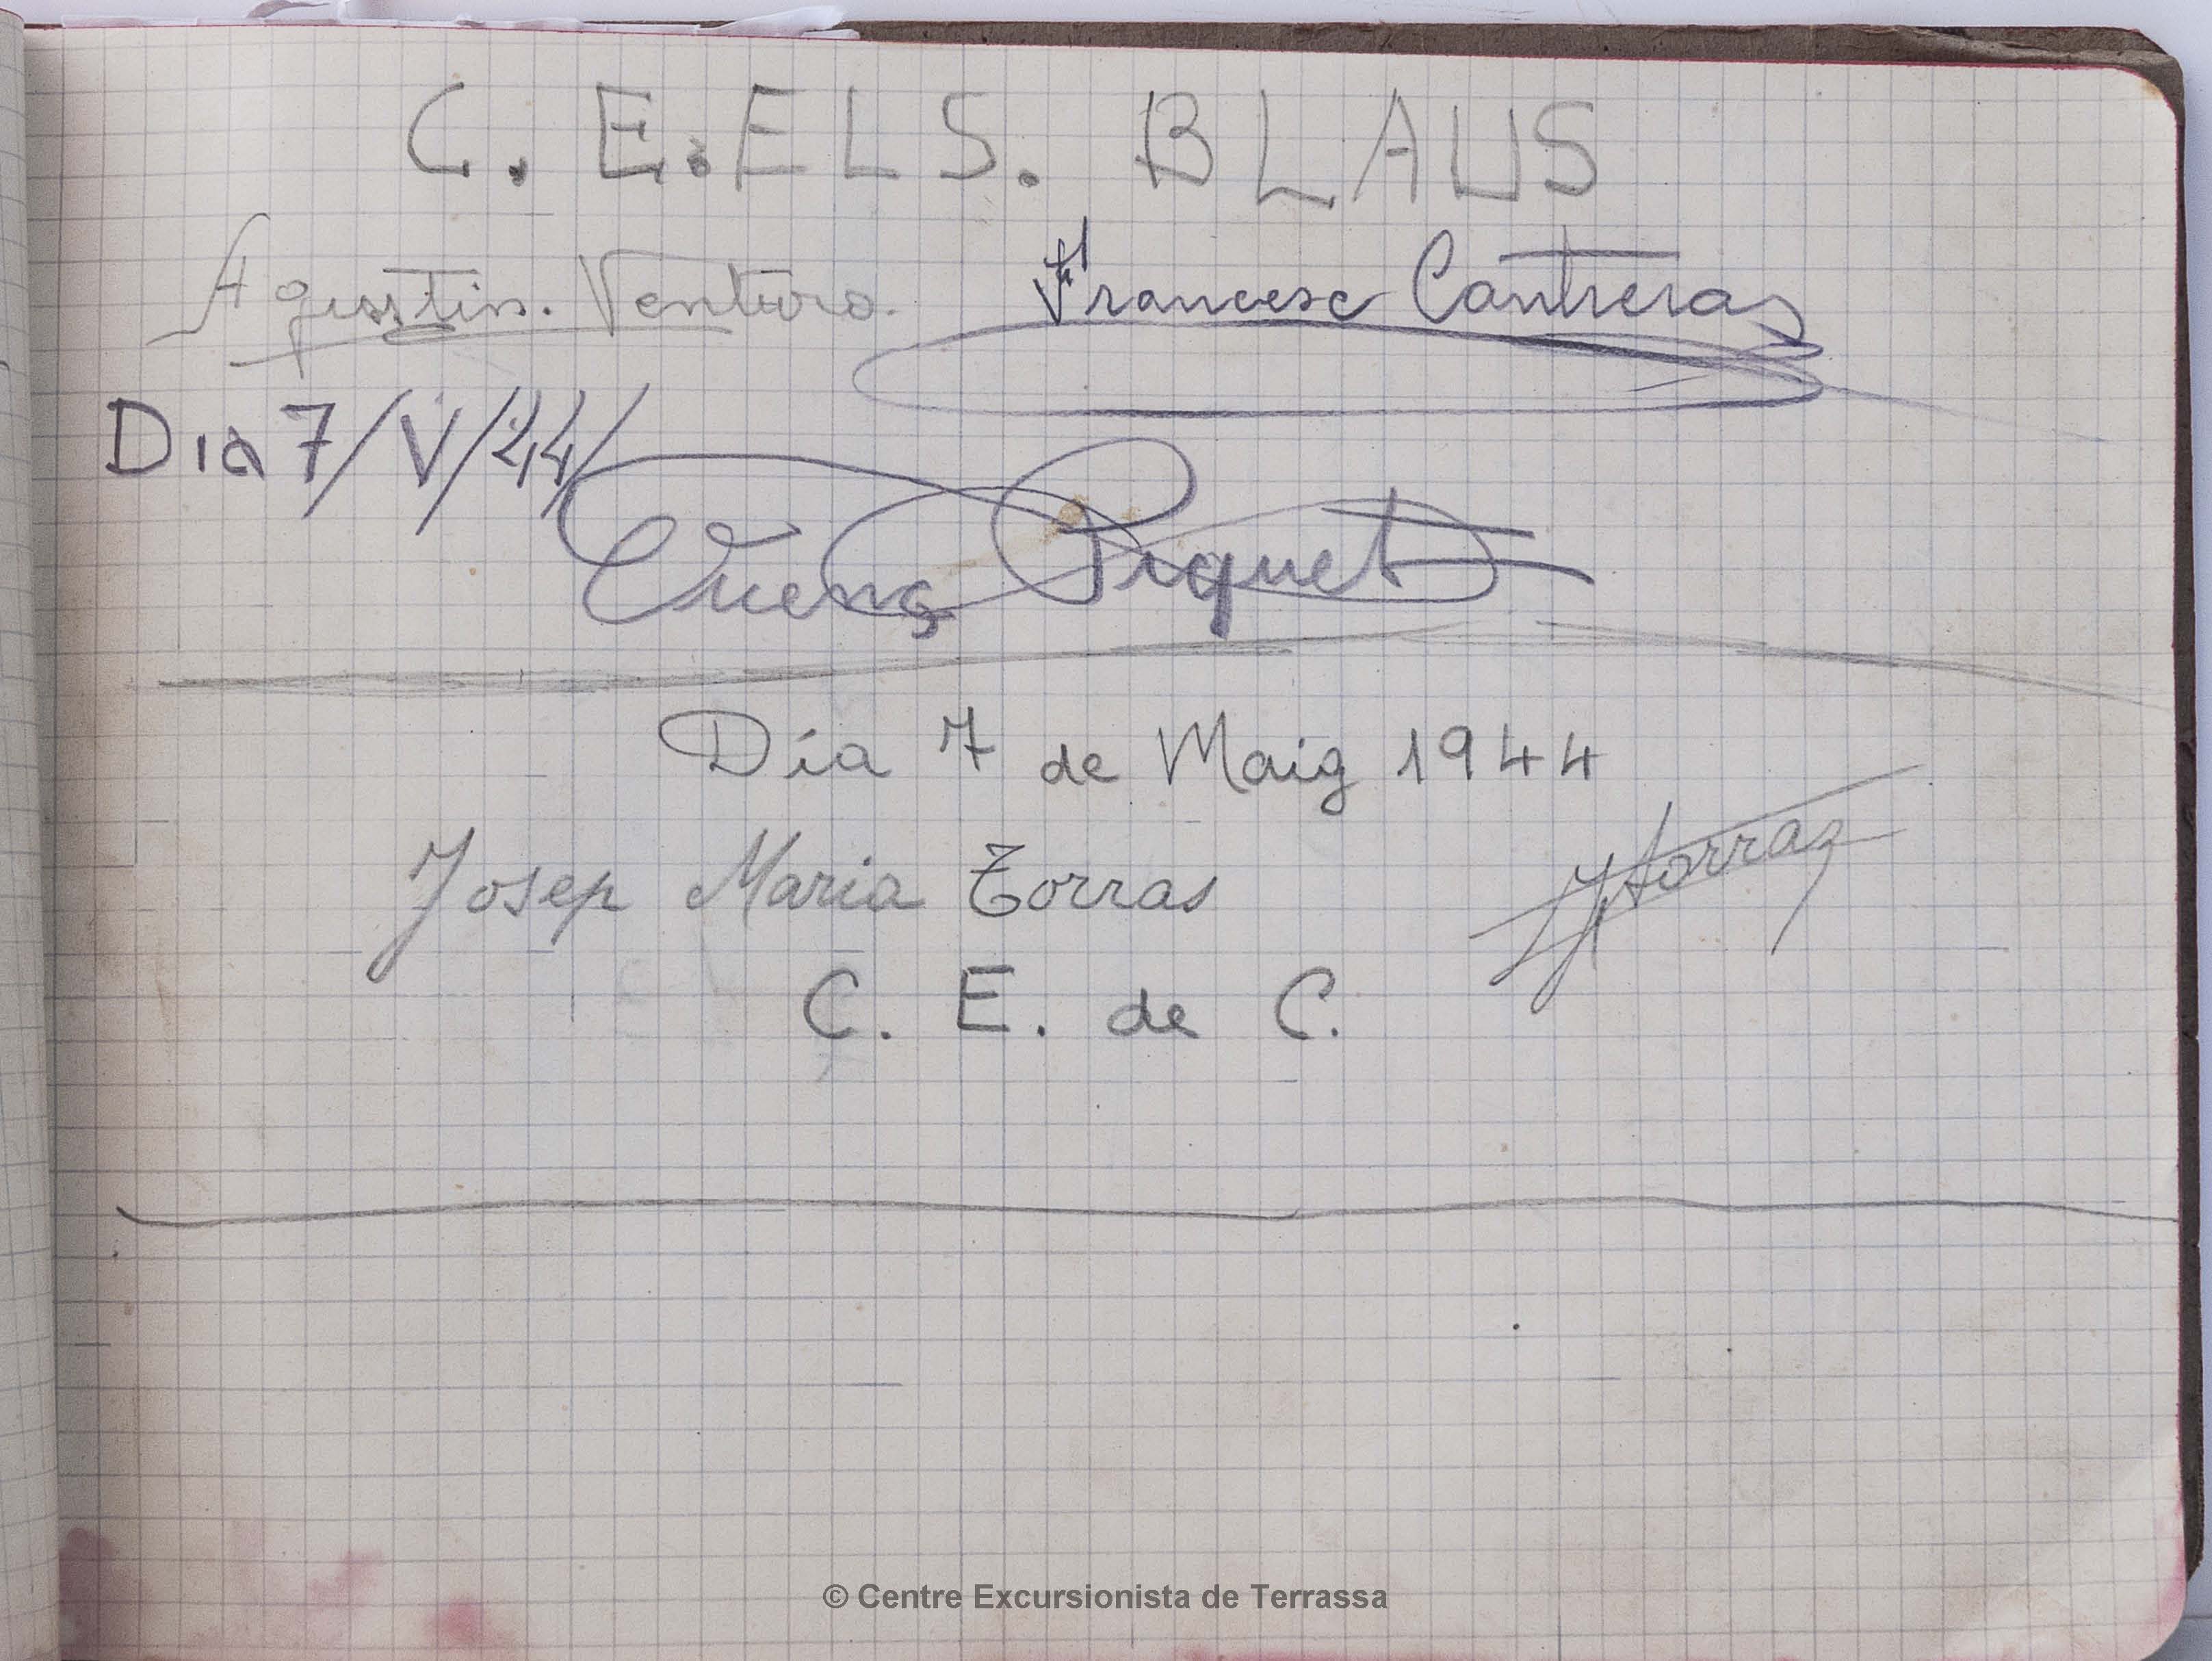 C. E. ELS. BLAUS
Agusstin. Ventura. Francesc Contreras
Dia 7/V/44/
Piquet
Día 7 de Maig 1944
Josep Maria Torras JTorras
C. E. de C.
© Centre Excursionista de Terrassa